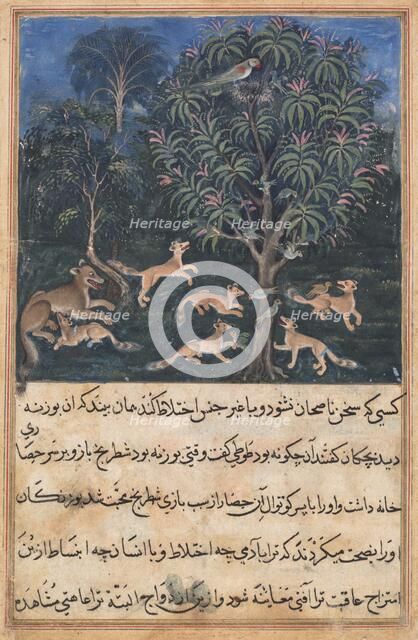 Heritage Heritage
Heritage Heritage
کسی که سخن ناصحان نشنود و با غیر جنس اختلاط کند همان بیند که ان بوزنه
ری
دید بچگان گفتند آن چگونه بود طوطی گفت وقتی بوزنه بود شطرنج باز و بر سر حصا
خانه داشت و او را با پسر کوتوال آن حصار از سبب بازی شطرنج محبت شد بوزنگان
و را نصیحت میکردند که ترا با آدمی چه اختلاط و با انسان چه انبساط ازین
امتزاج عاقبت ترا آفتی معاینه شود و ازین ازدواج البتة ترا عاهتی مشاهده